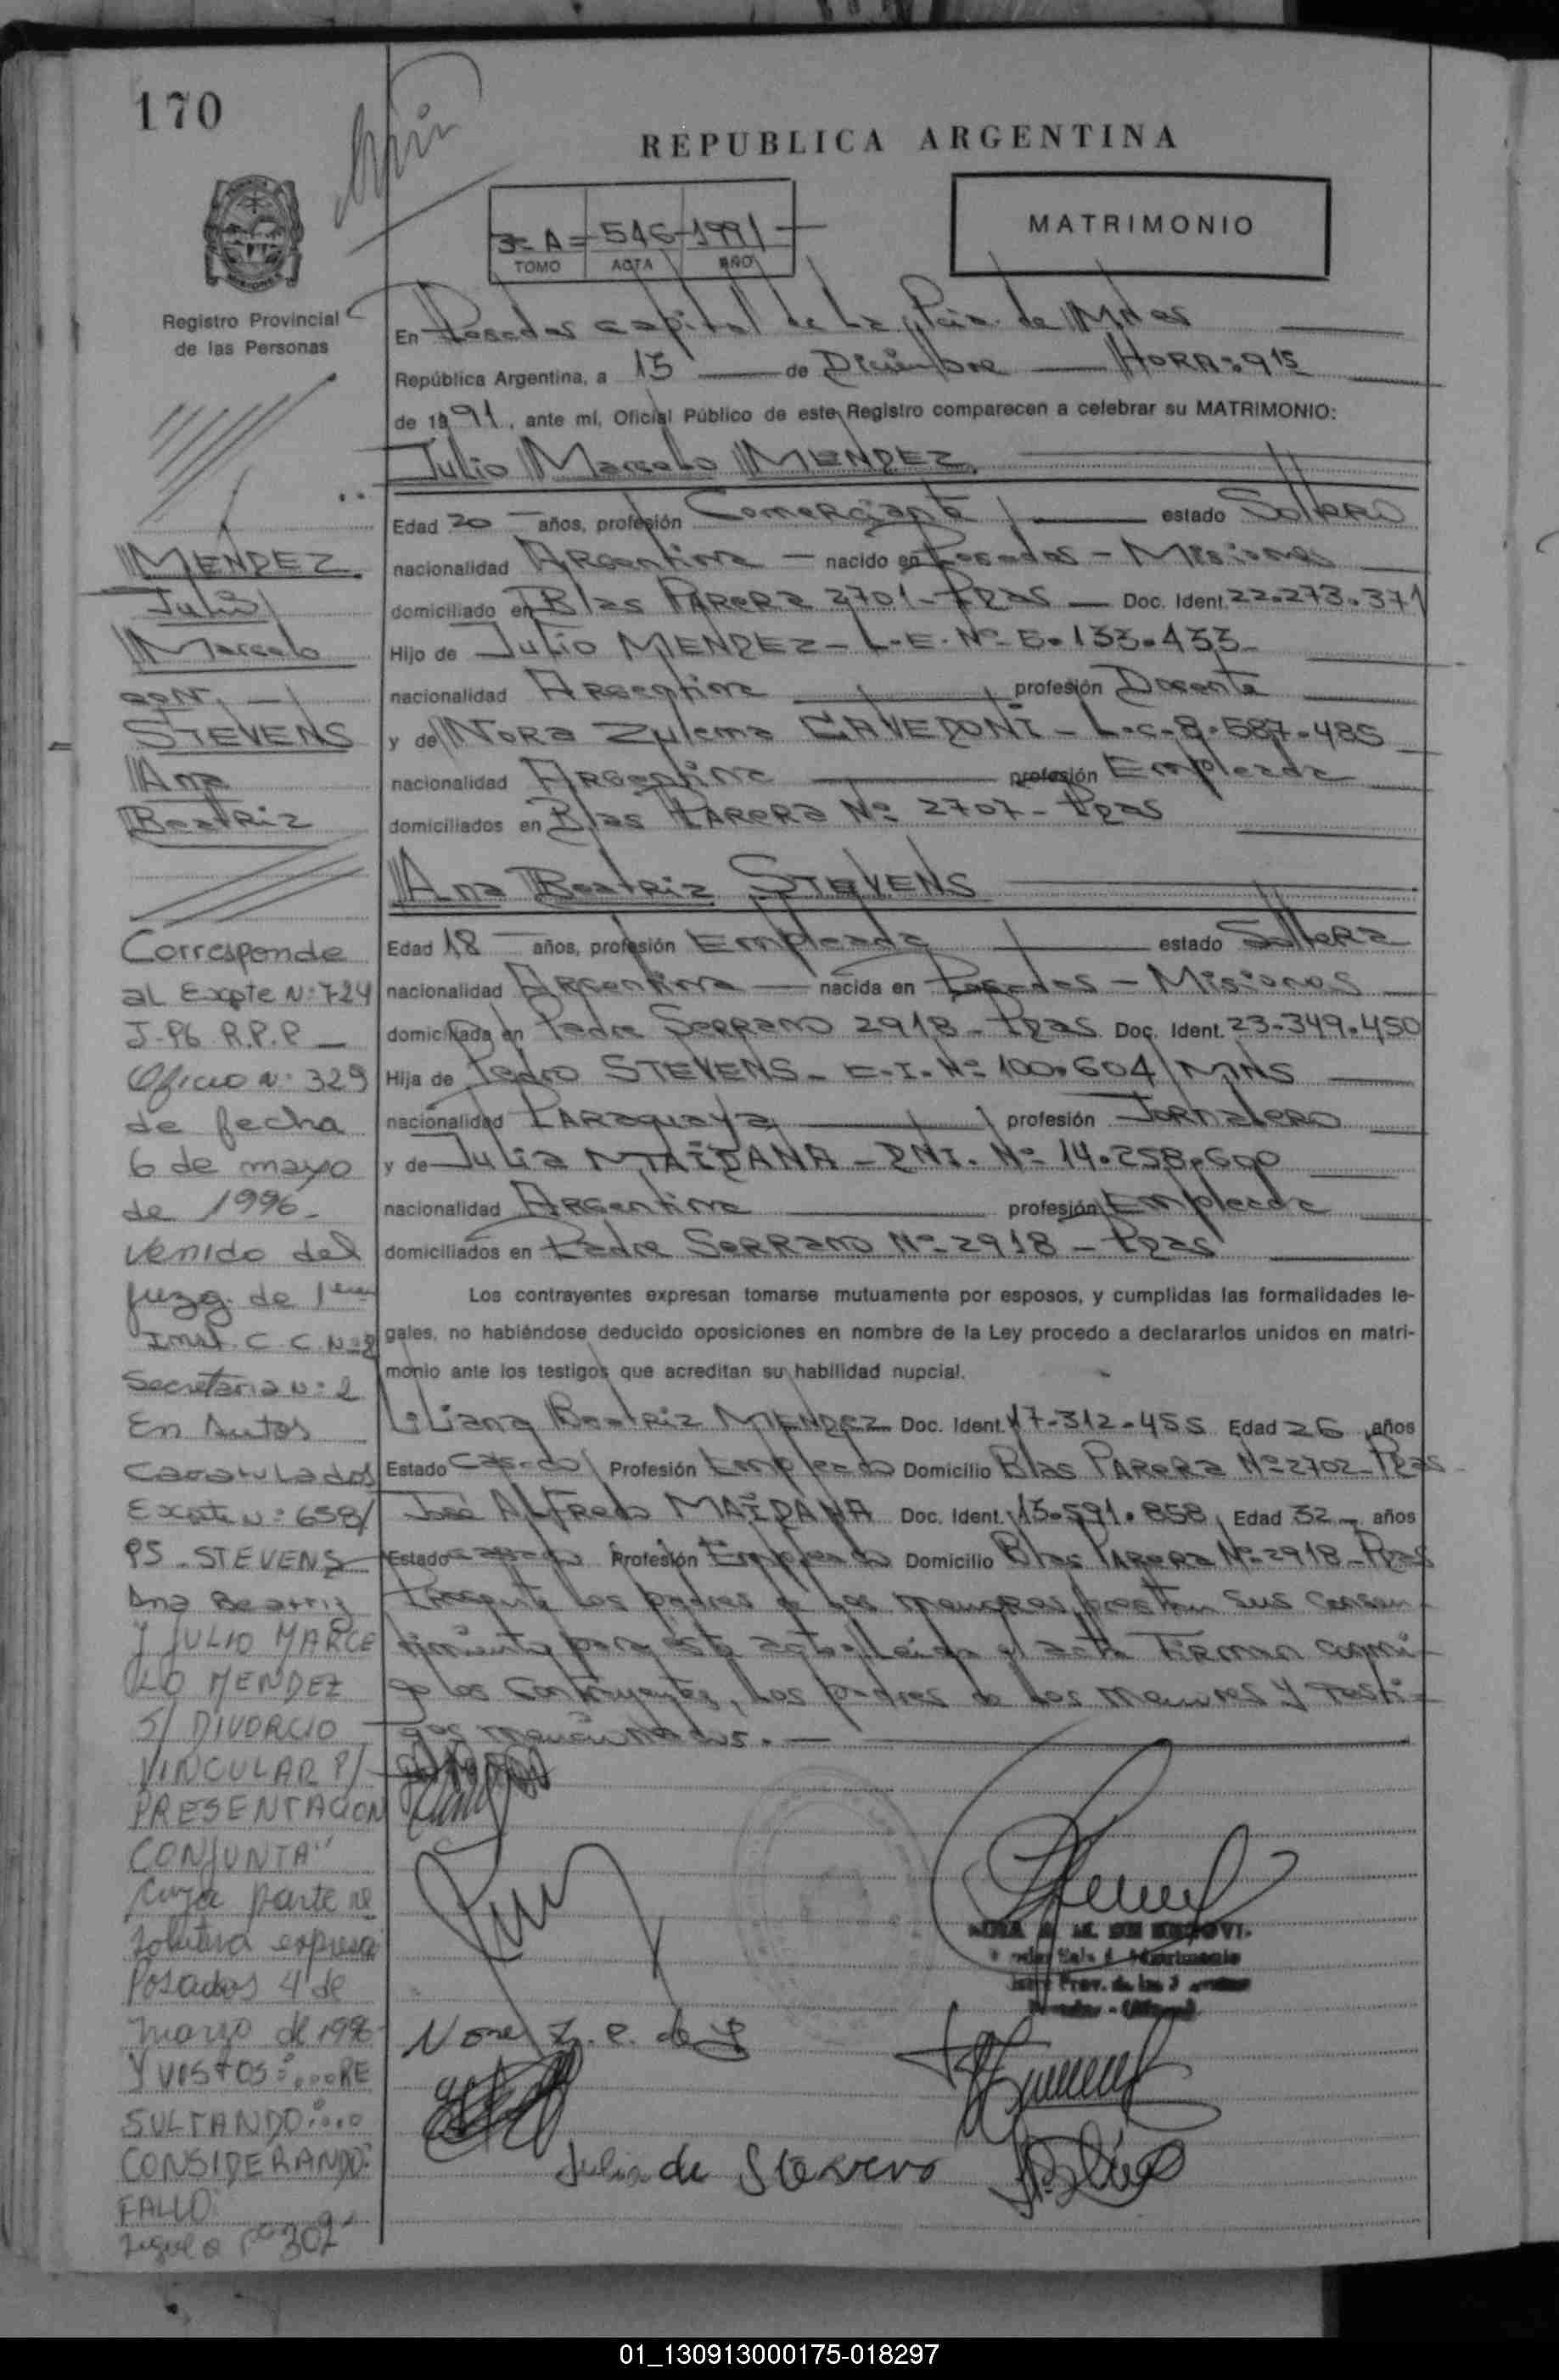 170
REPUBLICA ARGENTINA
MATRIMONIO
3= A= 546 1991
TOMO ACTA AÑO
Registro Provincial
de las Personas
En Posadas capital de la Pcia. de Mnes
República Argentina, a 13 de Diciembre HORA: 9 15
de 1991, ante mí, Oficial Público de este Registro comparecen a celebrar su MATRIMONIO:
Julio Marcelo MENDEZ
Edad 20 años, profesión Comerciante estado Soltero
nacionalidad Argentina nacido en Posadas - Misiones
domiciliado en Blas PARERA 2701 - Pdas Doc. Ident. 22.273.371
Hijo de Julio MENDEZ - L.E. Nº
nacionalidad Argentina profesión Docente
y de Nora Zulema CAVEDONI - L.C. 587-485
nacionalidad Argentina profesión Empleada
domiciliados en Blas PARERA Nº 2707 - Pdas
Ana Beatriz STEVENS
Edad 18 años, profesión Empleada estado Soltera
nacionalidad Argentina nacida en Posadas - Misiones
domiciliada en Padre Serrano 2918 - Pdas Doc. Ident. 23-349.450
Hija de Pedro STEVENS - C.I. Nº 100.604/MNS
nacionalidad Paraguaya profesión Jornalero
y de Julia MAIDANA - DNI. Nº 14.258.600
nacionalidad Argentina profesión Empleada
domiciliados en Padre Serrano Nº 2918 - Pdas
Los contrayentes expresan tomarse mutuamente por esposos, y cumplidas las formalidades le-
gales, no habiéndose deducido oposiciones en nombre de la Ley procedo a declararlos unidos en matri-
monio ante los testigos que acreditan su habilidad nupcial.
Liliana Beatriz MENDEZ Doc. Ident. 17-312-455 Edad 26 años
Estado Casado Profesión Empleado Domicilio Blas PARERA Nº 2702 - Pdas
José ALFredo MAIDANA Doc. Ident. 13.591.858 Edad 32 años
Estado casado Profesión Empleado Domicilio Blas Parera Nº 2918 - Pdas
Presente los padres de los menores prestan sus consen-
timiento para este acto. Leida el acta Firman conmi-
go los Contrayentes, los padres de los menores y testi-
gos mencionados. -
Nora Z. C. de
Julia de Stevens
MENDEZ
Julio
Marcelo
CON
STEVENS
Ana
Beatriz
Corresponde
al Expte Nº 724
J-96 R.P.P
Oficio Nº 329
de fecha
6 de mayo
de 1996-
venido del
juzg. de 1era
Inst. C. C. Nº 2
Secretaria Nº 2
En Autos
Caratulados
Expte Nº 658/
95 - STEVENS
Ana Beatriz
Y JULIO MARCE
LO MENDEZ
S/ DIVORCIO
VINCULAR P/
PRESENTACION
CONJUNTA"
cuya parte re
solutiva expresa
Posadas 4 de
marzo de 1996
Y VISTOS:....RE
SULTANDO:....
CONSIDERANDO:
FALLO:
sigue a Fº 302
01_130913000175-018297